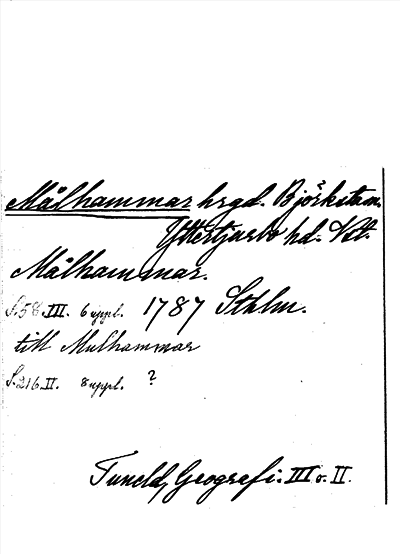 Målhammar hrgd. Björkstam.
Yttertjurbo hd. Vstl.
Målhammar.
S. 58 III. 6 uppl. 1787 Sthlm.
till Mulhammar
S. 216 II. 8 uppl. ?
Tuneld, Geografi. III o. II.